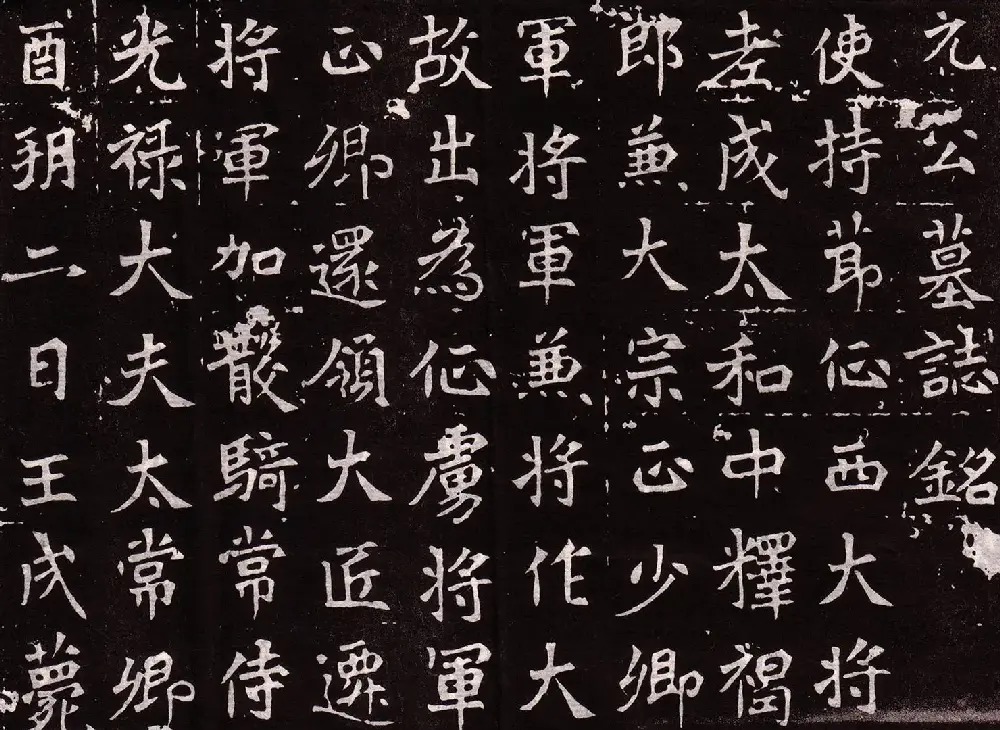 元公墓誌銘
使持節征西大將
孝成太和中釋褐
郎兼大宗正少卿
軍將軍兼將作大
故出為征虜將軍
正卿還領大匠遷
將軍加散騎常侍
光祿大夫太常卿
酉朔二日壬戌薨